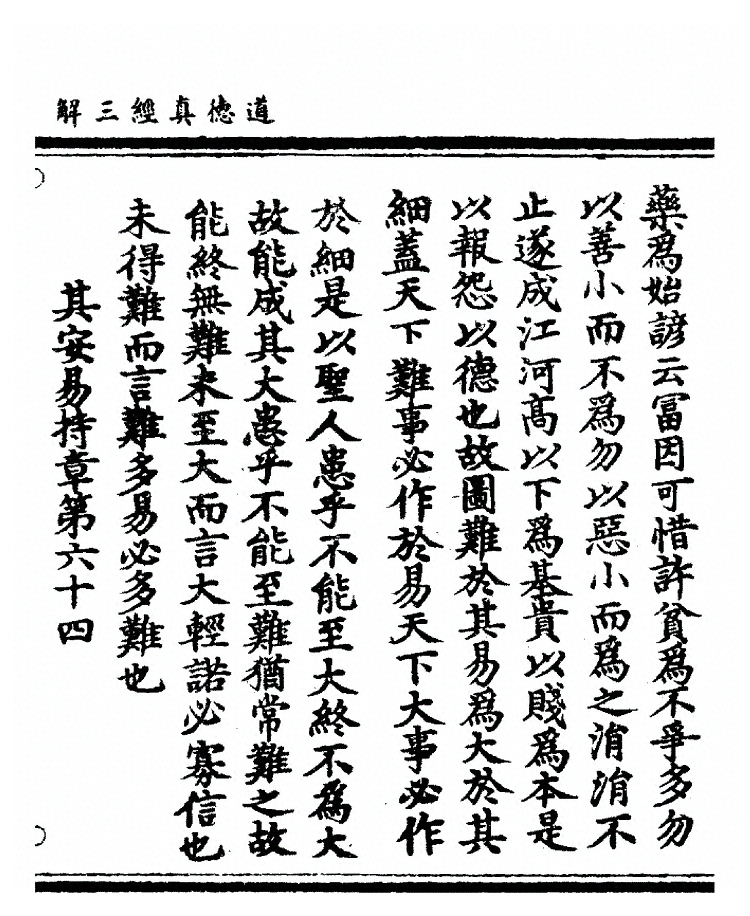 道德真經三解
藥為始諺云冨因可惜許貧為不爭多勿
以善小而不為勿以惡小而為之涓涓不
止遂成江河髙以下為基貴以賤為本是
以報怨以德也故圖難於其易為大於其
細蓋天下難事必作於易天下大事必作
於細是以聖人患乎不能至大終不為大
故能成其大患乎不能至難猶常難之故
能終無難未至大而言大輕諾必寡信也
未得難而言難多易必多難也
其安易持章第六十四